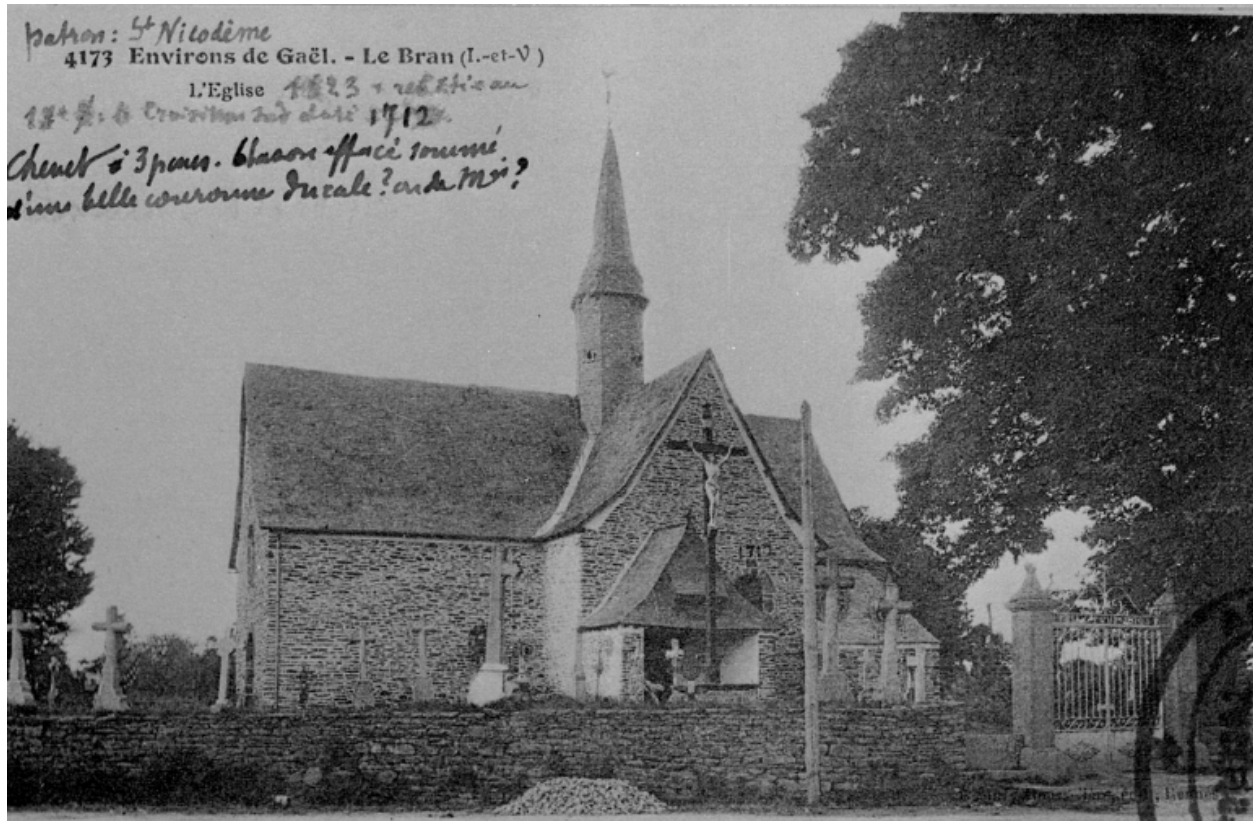 patron: St Nicodème
4173 Environs de Gaël. - Le Bran (I.-et-V)
L'Eglise 1823 +
Croisillon sud daté 1712
Chevet à 3 pans. blason effacé sommé
d'une belle couronne Ducale? ou de Mis?
1712